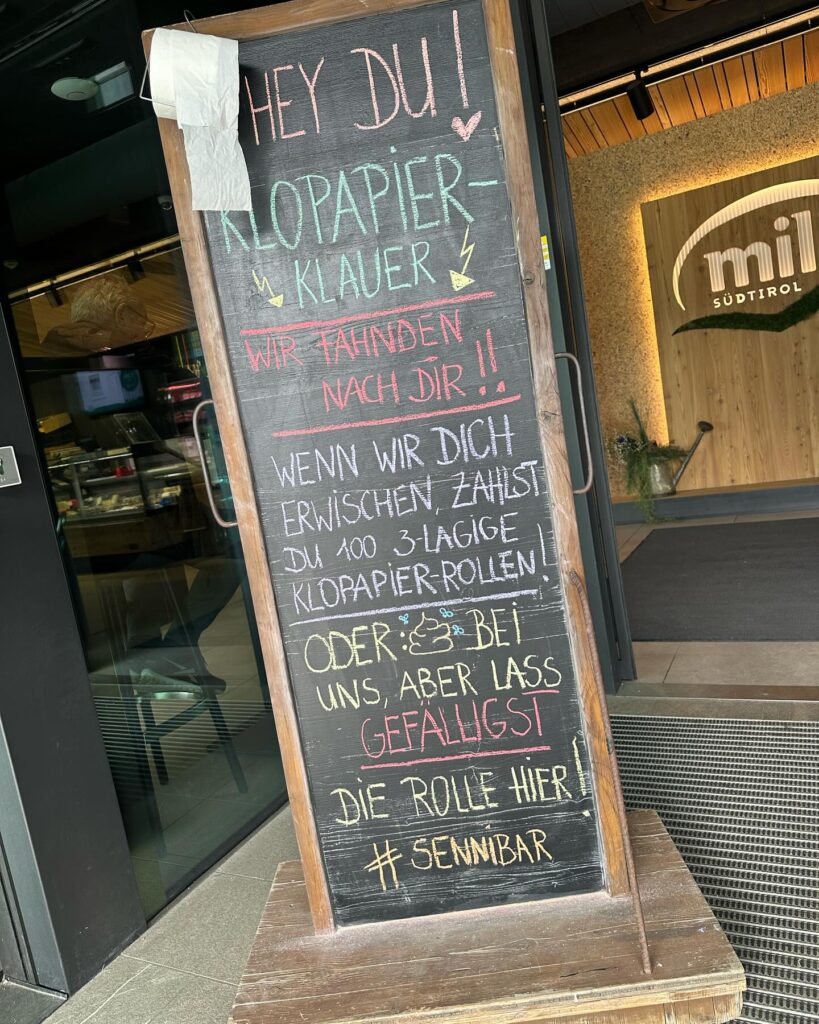 HEY DU!
KLOPAPIER-
KLAUER
WIR FAHNDEN
NACH DIR!!
WENN WIR DICH
ERWISCHEN, ZAHLST
DU 100 3-LAGIGE
KLOPAPIER-ROLLEN!
ODER: BEI
UNS, ABER LASS
GEFÄLLIGST
DIE ROLLE HIER!
# SENNIBAR
mil
SÜDTIROL